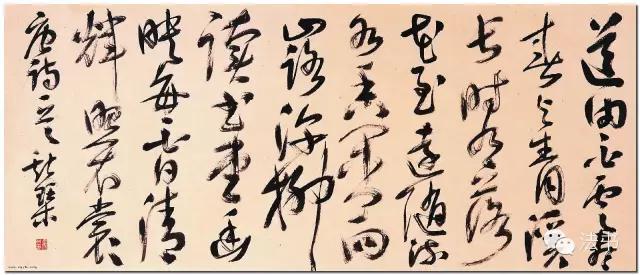 道由白雲盡
春與青溪
長時有落
花至遠隨流
水香閒門向
山路深柳
讀書堂幽
映每白日清
輝照衣裳
唐詩一首
法书